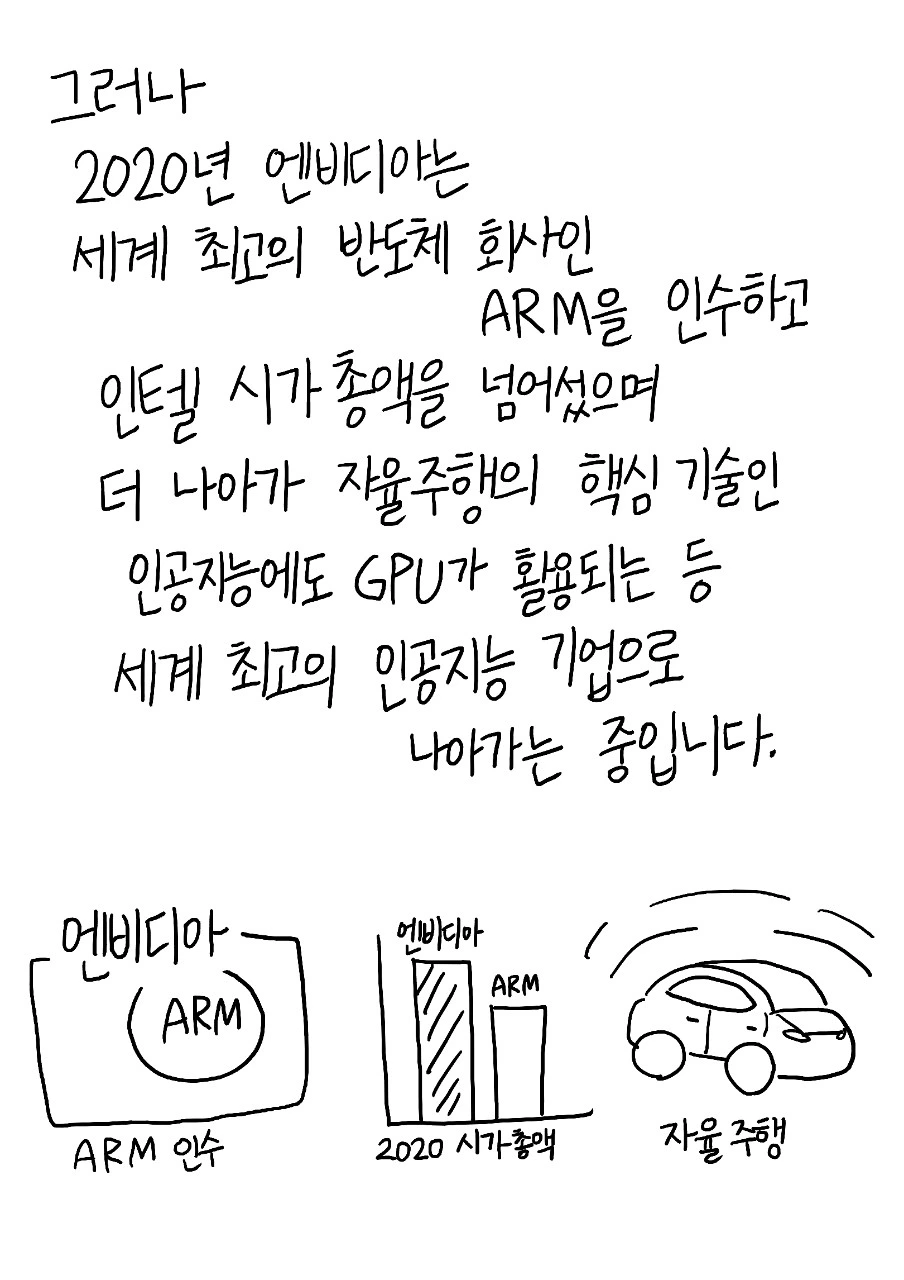 그러나
2020년 엔비디아는
세계 최고의 반도체 회사인
ARM을 인수하고
인텔 시가총액을 넘어섰으며
더 나아가 자율주행의 핵심 기술인
인공지능에도 GPU가 활용되는 등
세계 최고의 인공지능 기업으로
나아가는 중입니다.
엔비디아
ARM
ARM 인수
엔비디아
ARM
2020 시가총액
자율주행